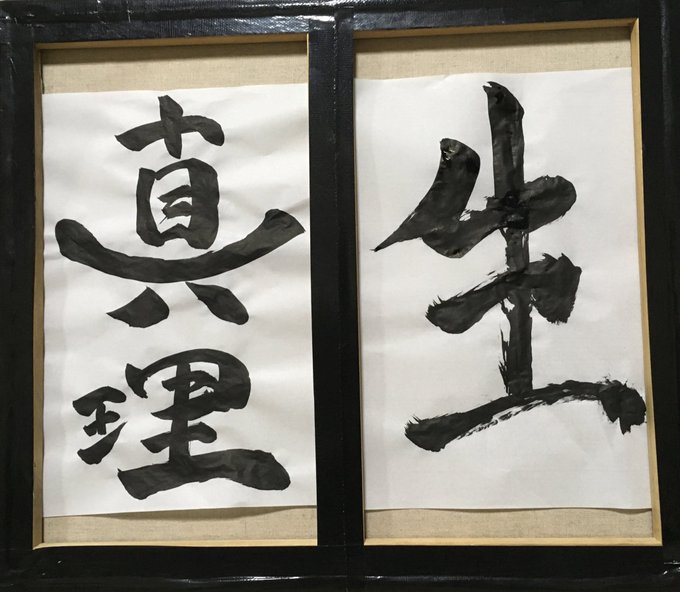 生
真理